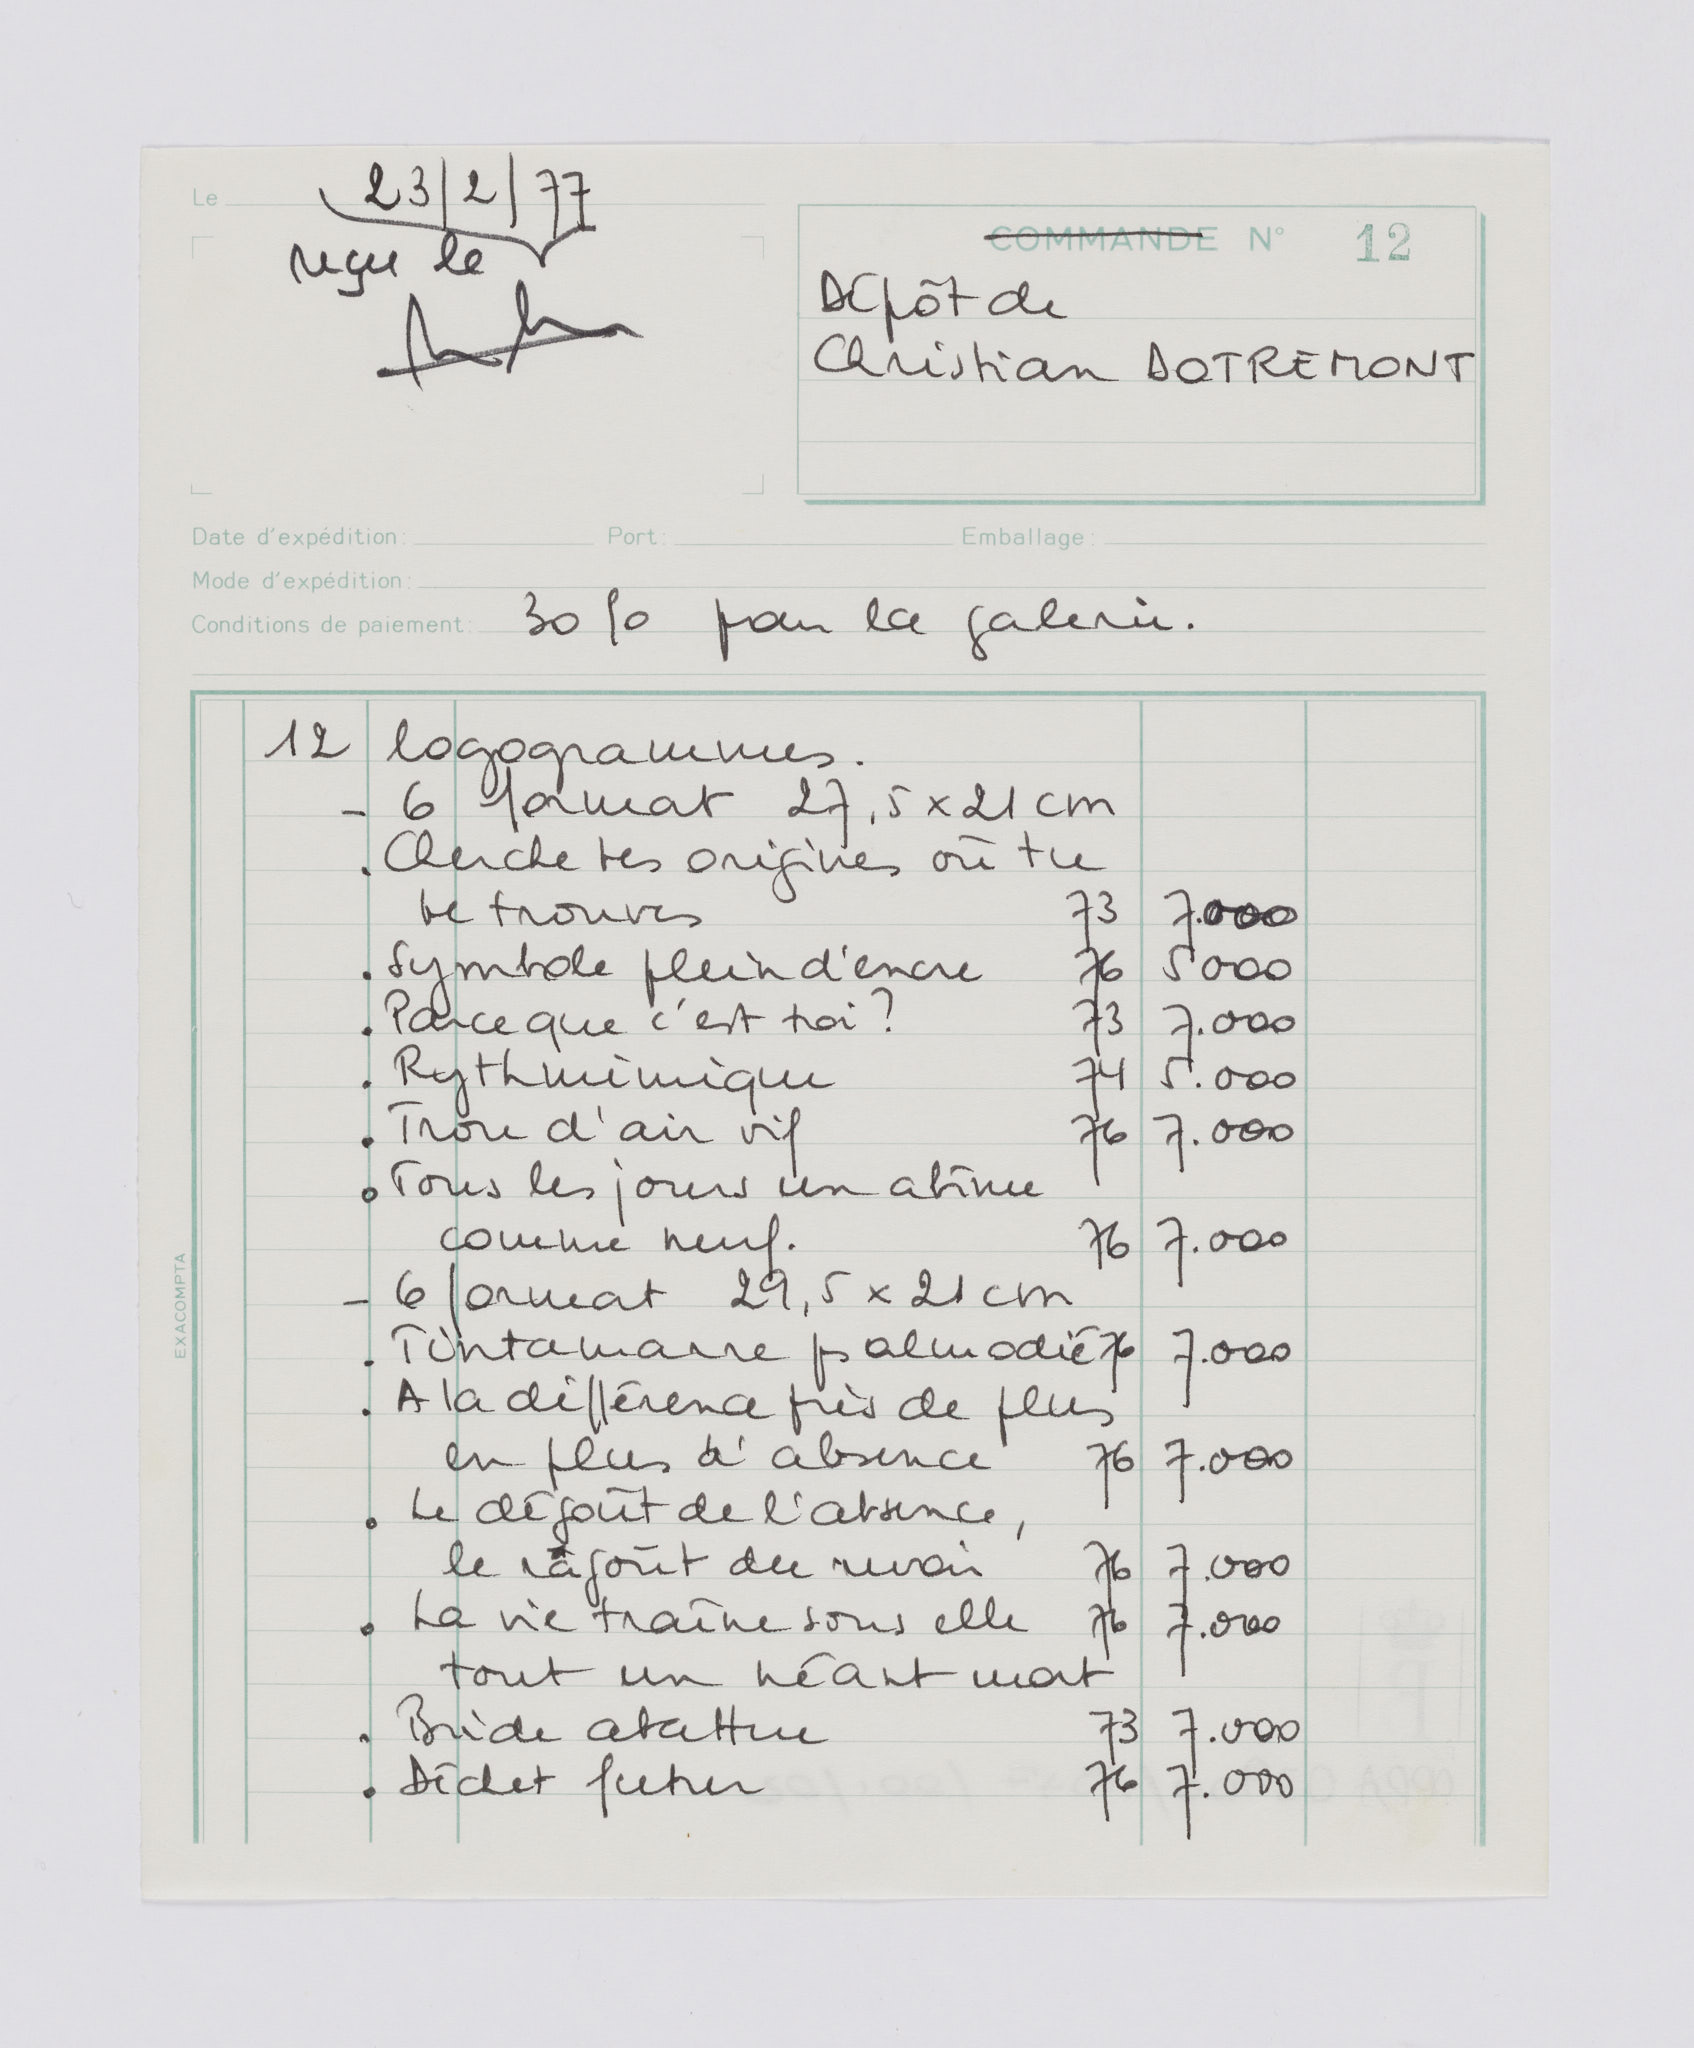 Le 23/2/77
reçu le
COMMANDE N° 12
Dépôt de
Christian DOTREMONT
Date d'expédition: Port: Emballage:
Mode d'expédition:
Conditions de paiement: 30% pour la galerie.
12 logogrammes.
- 6 format 27,5 x 21 cm
. Cherche tes origines où tu
te trouves 73 7.000
. Symbole plein d'encre 76 5000
. Parce que c'est toi? 73 7.000
. Rythmimique 74 5.000
. Trou d'air vif 76 7.000
. Tous les jours un abîme
comme neuf. 76 7.000
- 6 format 29,5 x 21 cm
. Tintamarre psalmodié 76 7.000
. A la différence près de plus
en plus d'absence 76 7.000
. Le dégoût de l'absence,
le ragoût du revoir 76 7.000
. La vie traîne sous elle 76 7.000
tout un néant mat
. Bride abattue 73 7.000
. Déchet futur 76 7.000
EXACOMPTA